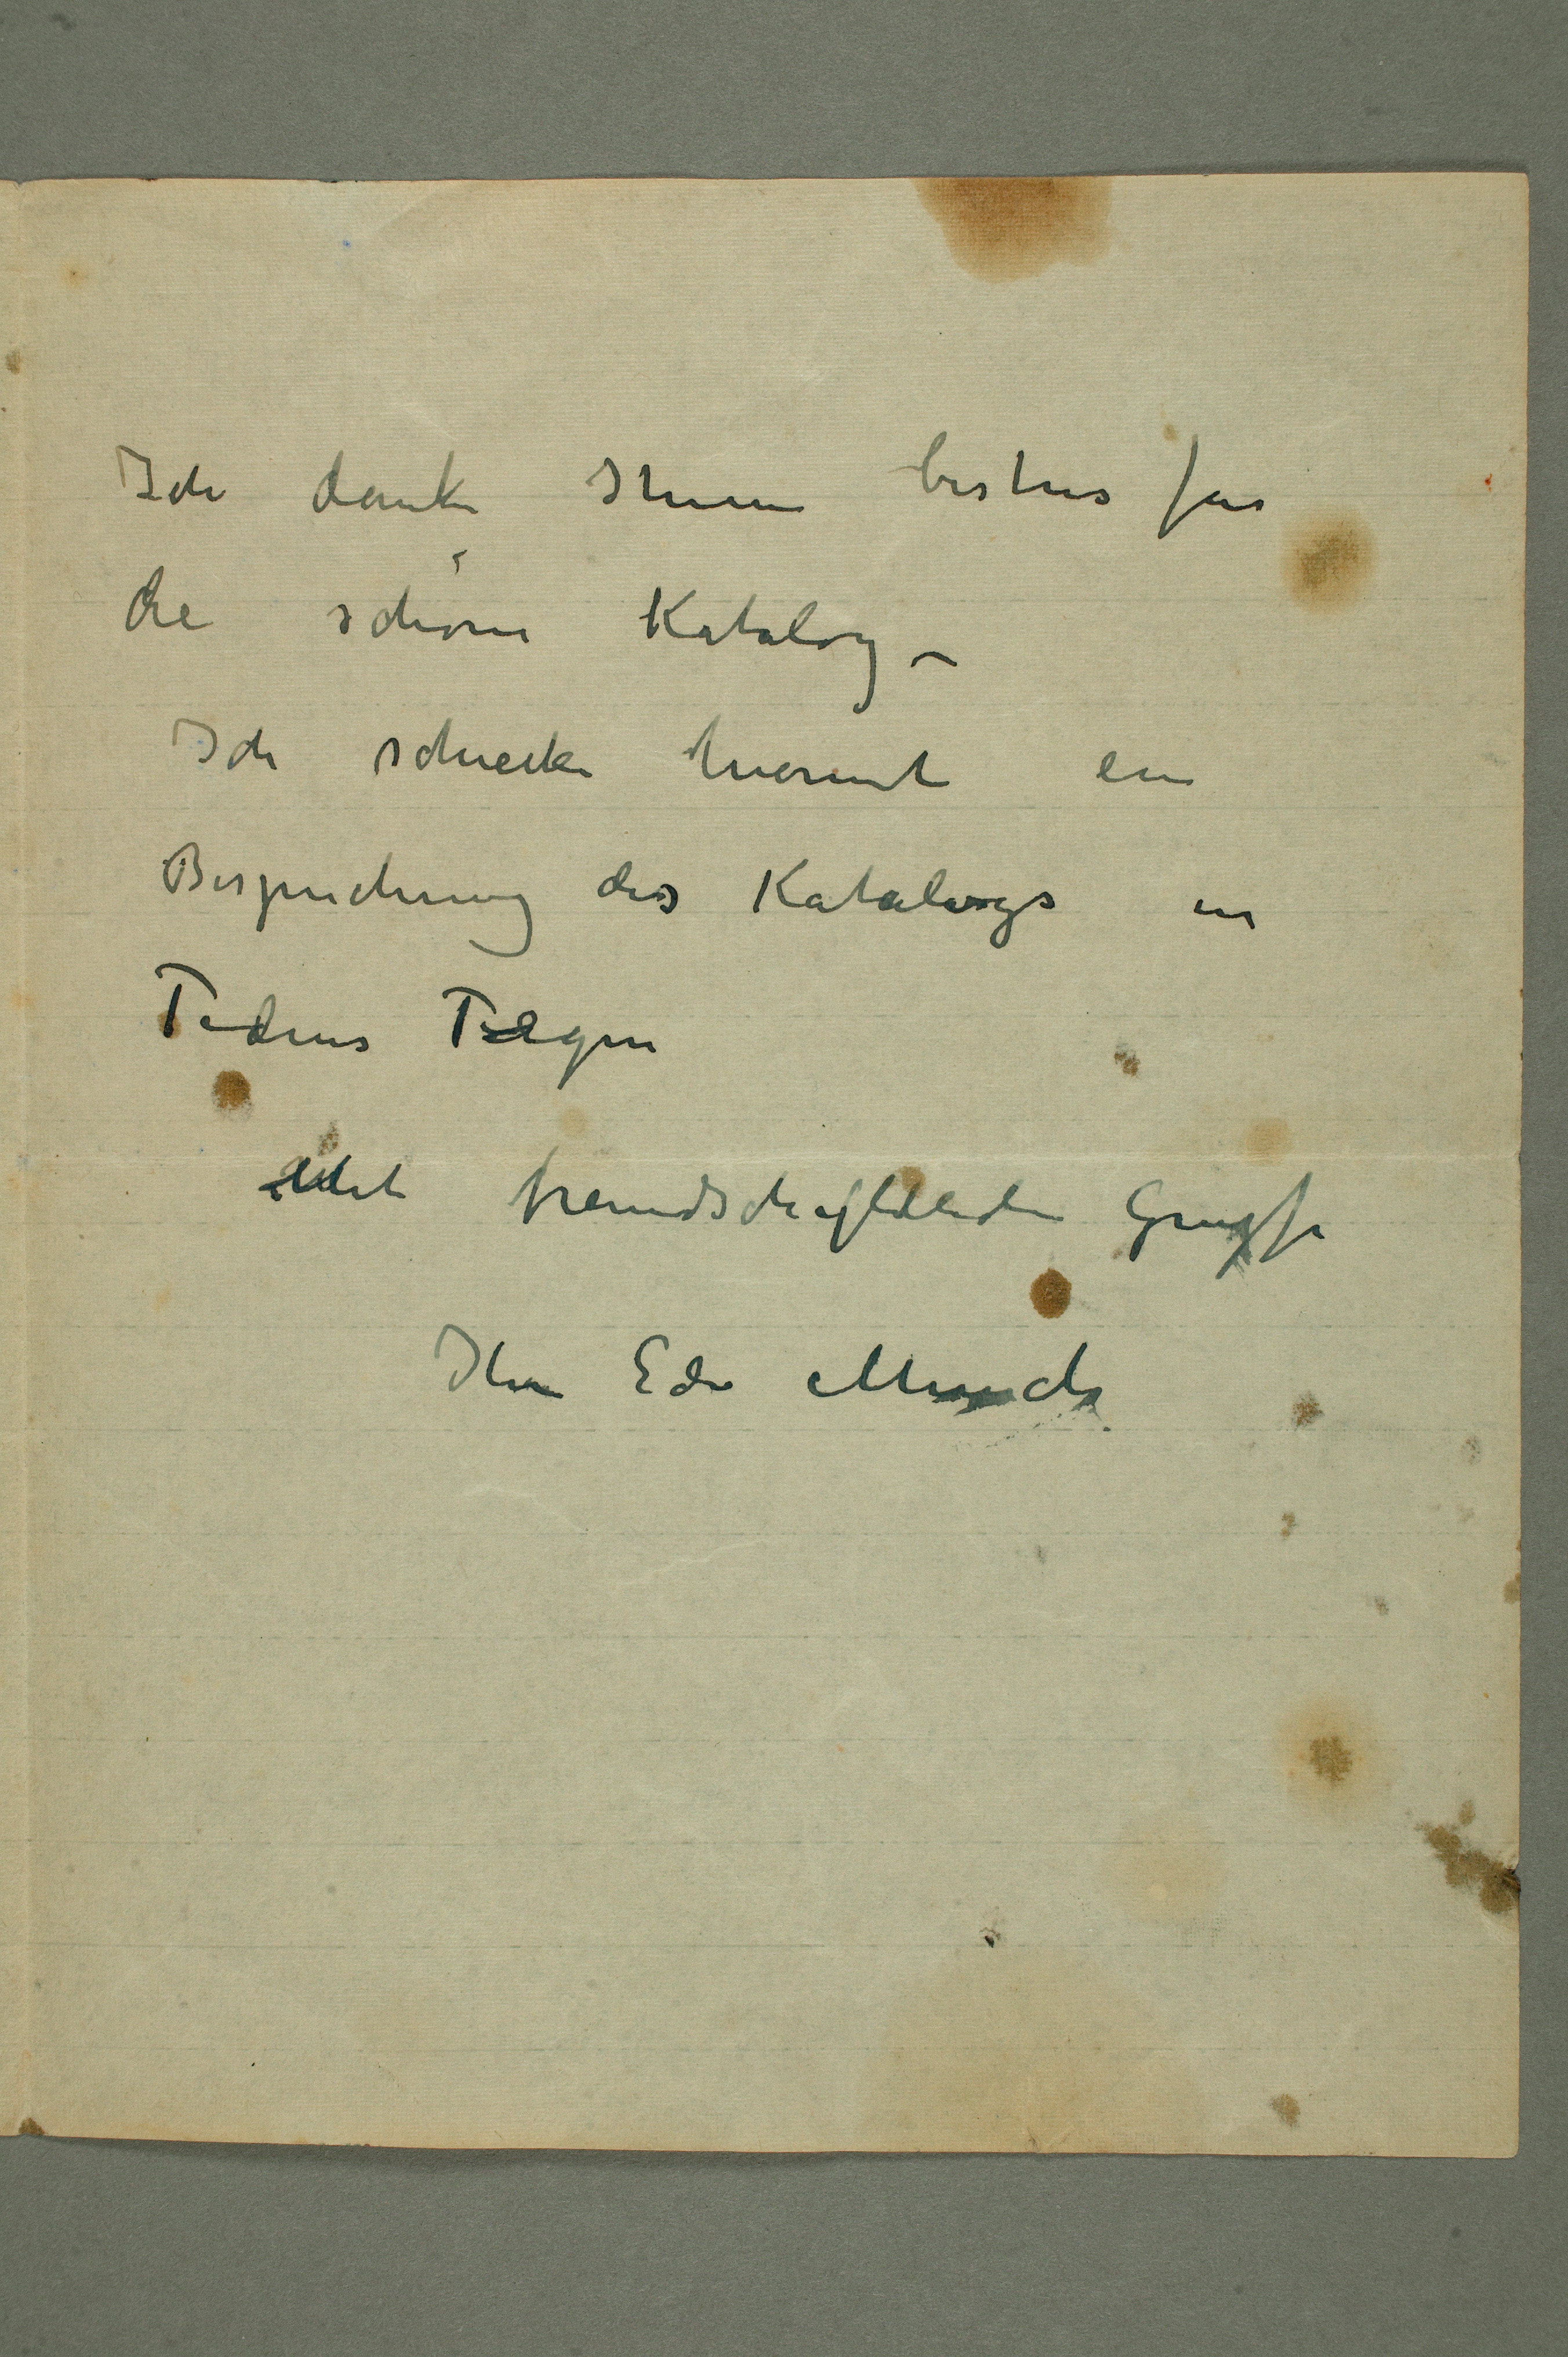 Ich danke Ihnen bestens für
die schöne Katalog –
Ich schicke hiermit ein
Besprechung des Katalogs in
Tidens Tegn
Mit freundschaftlichen Gruß
Ihr Edv Munch